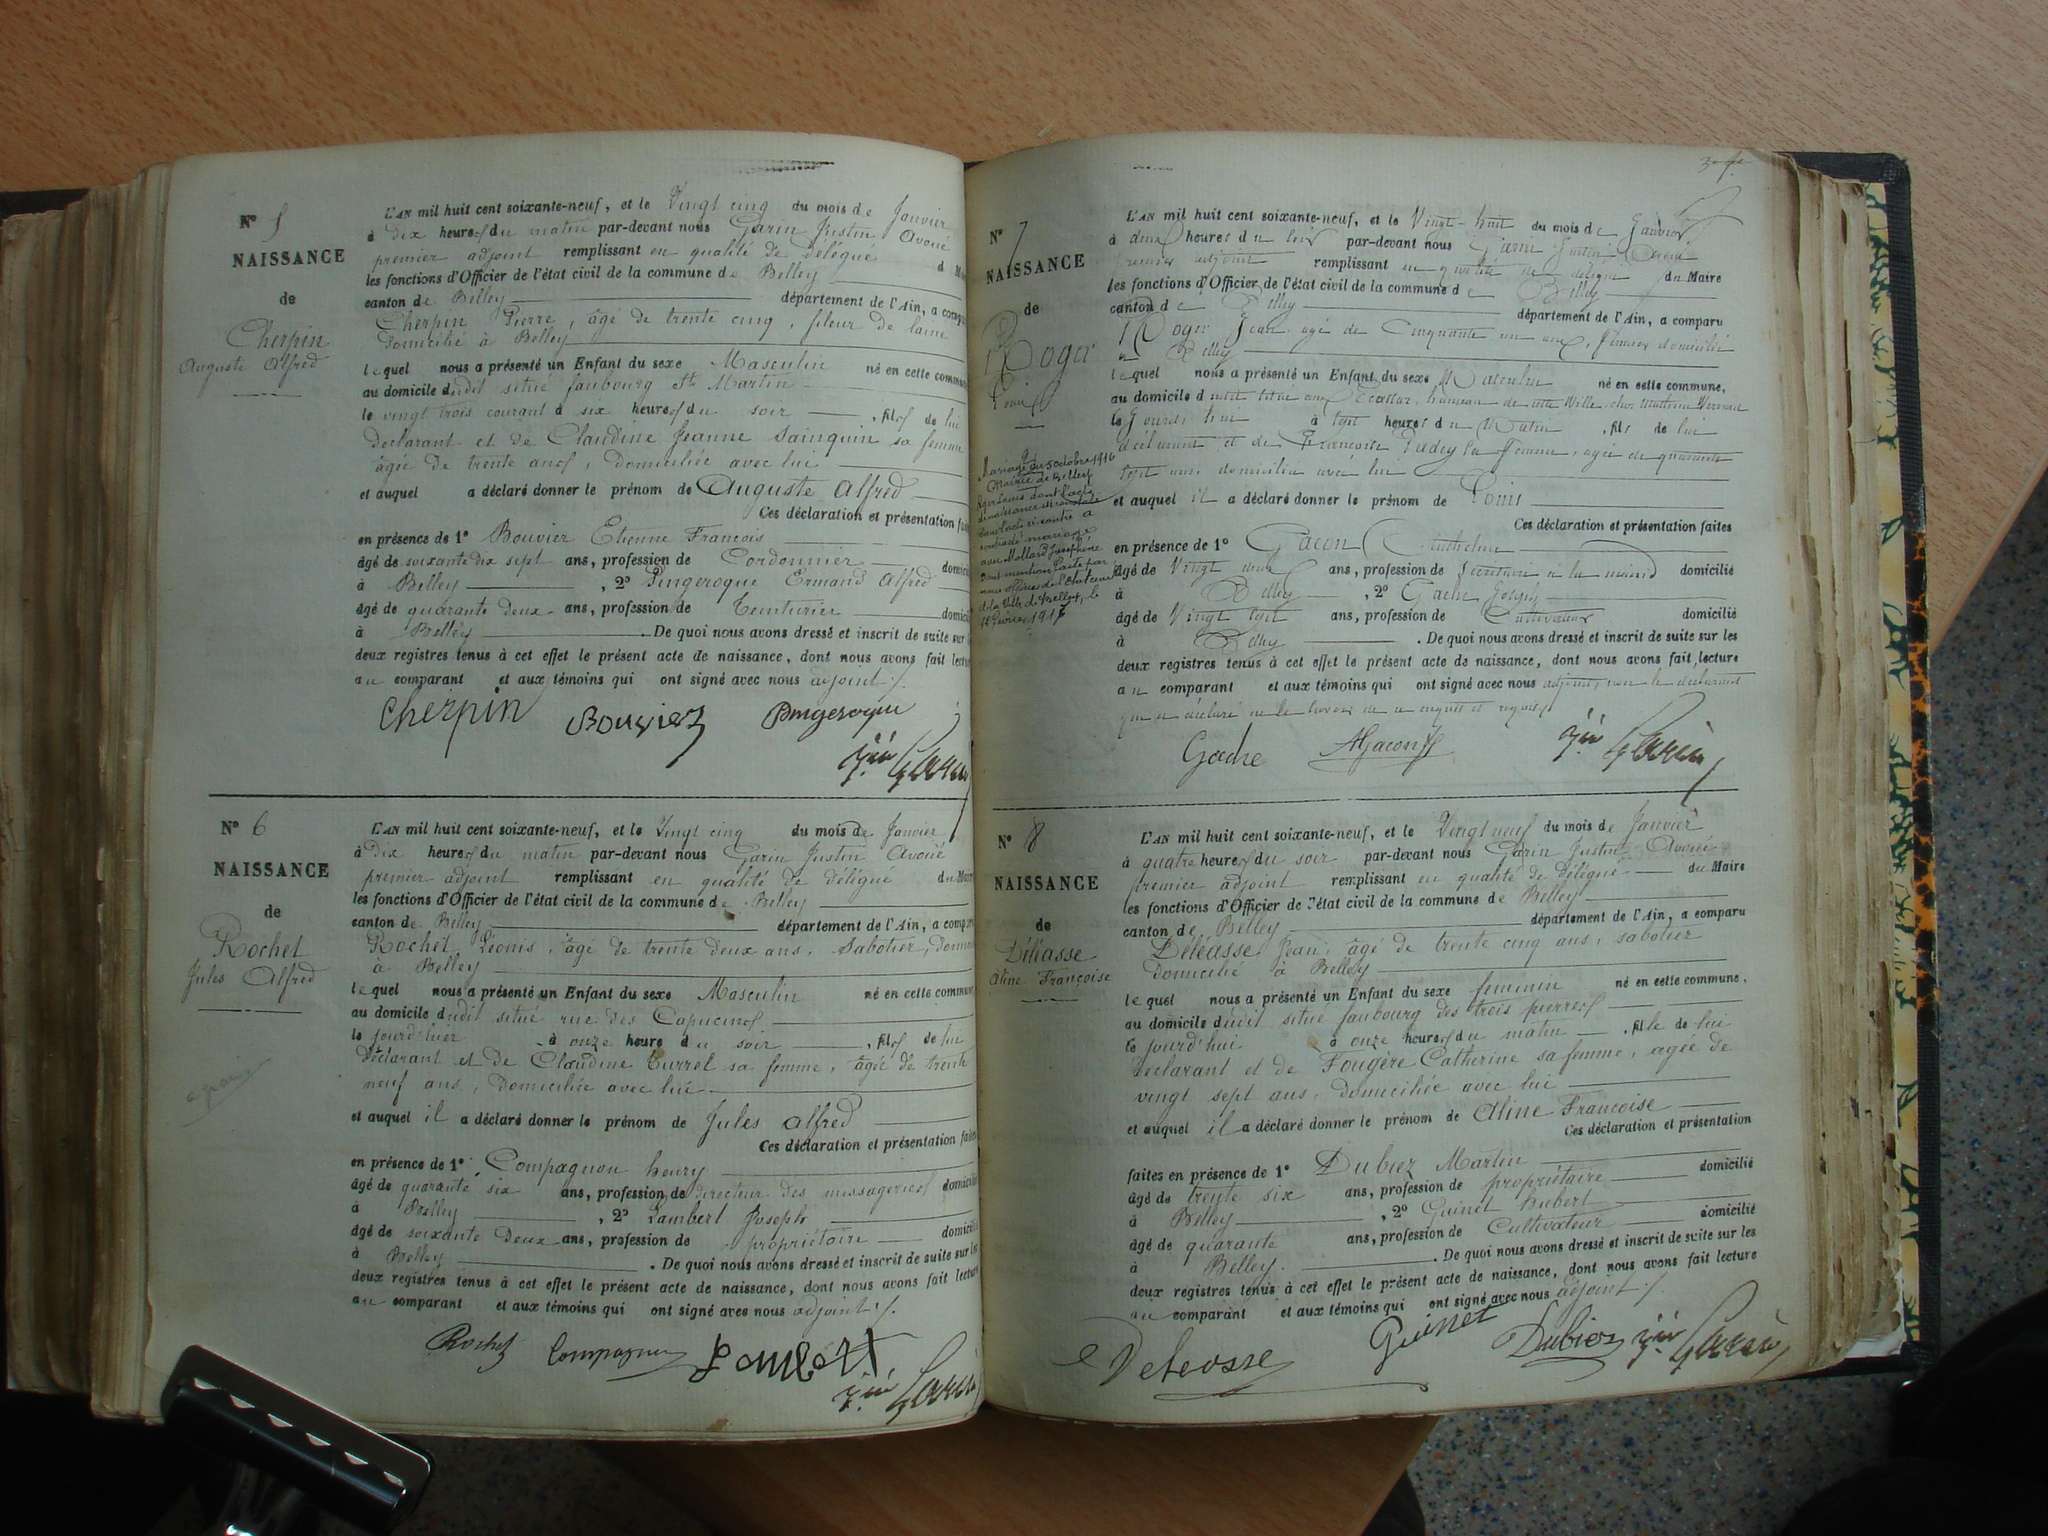 N° 5
NAISSANCE
de
Cherpin
Auguste Alfred
L'AN mil huit cent soixante-neuf, et le Vingt cinq du mois de Janvier
à dix heures du matin par-devant nous Garin Justin Avoué
premier adjoint remplissant en qualité de délégué d
les fonctions d'Officier de l'état civil de la commune de Belley
canton de Belley département de l'Ain, a
Cherpin Pierre, âgé de trente cinq, fileur de laine
domicilié à Belley
lequel nous a présenté un Enfant du sexe Masculin né en cette
au domicile dudit situé faubourg St Martin
le vingt trois courant à six heures du soir, fils de lui
déclarant et de Claudine Jeanne Sainquin sa femme
âgée de trente ans, domiciliée avec lui
et auquel a déclaré donner le prénom de Auguste Alfred
Ces déclaration et présentation
en présence de 1° Bouvier Etienne François
âgé de soixante dix sept ans, profession de Cordonnier
à Belley, 2° Pingeroque Ermand Alfred
âgé de quarante deux ans, profession de Teinturier
à Belley. De quoi nous avons dressé et inscrit de suite sur
deux registres tenus à cet effet le présent acte de naissance, dont nous avons fait
au comparant et aux témoins qui ont signé avec nous adjoint ./.
Cherpin Bouvier Pingeroque
Garin
N° 6
NAISSANCE
de
Rochet
Jules Alfred
L'AN mil huit cent soixante-neuf, et le Vingt cinq du mois de Janvier
à Dix heures du matin par-devant nous Garin Justin Avoué
premier adjoint remplissant en qualité de délégué du
les fonctions d'Officier de l'état civil de la commune de Belley
canton de Belley département de l'Ain, a
Rochet Léonis, âgé de trente deux ans, Sabotier,
à Belley
lequel nous a présenté un Enfant du sexe Masculin né en cette
au domicile dudit situé rue des Capucins
le jourd'hier à onze heure du soir, fils de lui
déclarant et de Claudine Turrel sa femme, âgée de trente
neuf ans, domiciliée avec lui
et auquel il a déclaré donner le prénom de Jules Alfred
Ces déclaration et présentation
en présence de 1° Compagnon henry
âgé de quarante six ans, profession de directeur des messageries
à Belley, 2° Lambert Joseph
âgé de soixante deux ans, profession de propriétaire
à Belley. De quoi nous avons dressé et inscrit de suite sur les
deux registres tenus à cet effet le présent acte de naissance, dont nous avons fait lecture
au comparant et aux témoins qui ont signé avec nous adjoint ./.
Rochet Compagnon Lambert
Garin
N° 7
NAISSANCE
de
Roger
Louis
Mariage du 5 octobre 1916
Mairie de Belley
Roger Louis dont l'acte
de naissance est
dans l'acte ci-contre a
contracté mariage
avec Mollard Joséphine
Dont mention faite par
nous officier de l'état civil
de la Ville de Belley, le
février 1917
L'AN mil huit cent soixante-neuf, et le Vingt-huit du mois de Janvier
à deux heures du soir par-devant nous Garin Justin Avoué
premier adjoint remplissant en qualité de délégué du Maire
les fonctions d'Officier de l'état civil de la commune de Belley
canton de Belley département de l'Ain, a comparu
Roger Jean âgé de Cinquante un ans, domicilié
à Belley
lequel nous a présenté un Enfant du sexe Masculin né en cette commune,
au domicile dudit situé aux hameau de cette Ville chez
le Jourd'hui à sept heures du Matin, fils de lui
déclarant et de Françoise sa femme, âgée de quarante
sept ans, domiciliée avec lui
et auquel il a déclaré donner le prénom de Louis
Ces déclaration et présentation faites
en présence de 1° Gacon Anthelme
âgé de Vingt deux ans, profession de Secrétaire à la mairie domicilié
à Belley, 2° Gache Joseph
âgé de Vingt sept ans, profession de Cultivateur domicilié
à Belley. De quoi nous avons dressé et inscrit de suite sur les
deux registres tenus à cet effet le présent acte de naissance, dont nous avons fait lecture
au comparant et aux témoins qui ont signé avec nous adjoint, non le déclarant
qui a déclaré ne le savoir de ce enquis et requis
Gache AGacon Garin
N° 8
NAISSANCE
de
Déléasse
Aline Françoise
L'AN mil huit cent soixante-neuf, et le Vingt neuf du mois de Janvier
à quatre heures du soir par-devant nous Garin Justin Avoué
premier adjoint remplissant en qualité de délégué du Maire
les fonctions d'Officier de l'état civil de la commune de Belley
canton de Belley département de l'Ain, a comparu
Déléasse Jean, âgé de trente cinq ans, sabotier
domicilié à Belley
lequel nous a présenté un Enfant du sexe féminin né en cette commune.
au domicile dudit situé faubourg des trois pierres
le jourd'hui à onze heures du matin, fille de lui
déclarant et de Fougère Catherine sa femme, agée de
vingt sept ans, domiciliée avec lui
et auquel il a déclaré donner le prénom de Aline Francoise
Ces déclaration et présentation
faites en présence de 1° Dubiez Martin
âgé de trente six ans, profession de propriétaire domicilié
à Belley, 2° Guinet hubert
âgé de quarante ans, profession de Cultivateur domicilié
à Belley. De quoi nous avons dressé et inscrit de suite sur les
deux registres tenus à cet effet le présent acte de naissance, dont nous avons fait lecture
au comparant et aux témoins qui ont signé avec nous adjoint ./.
Deleasse Guinet Dubiez Garin